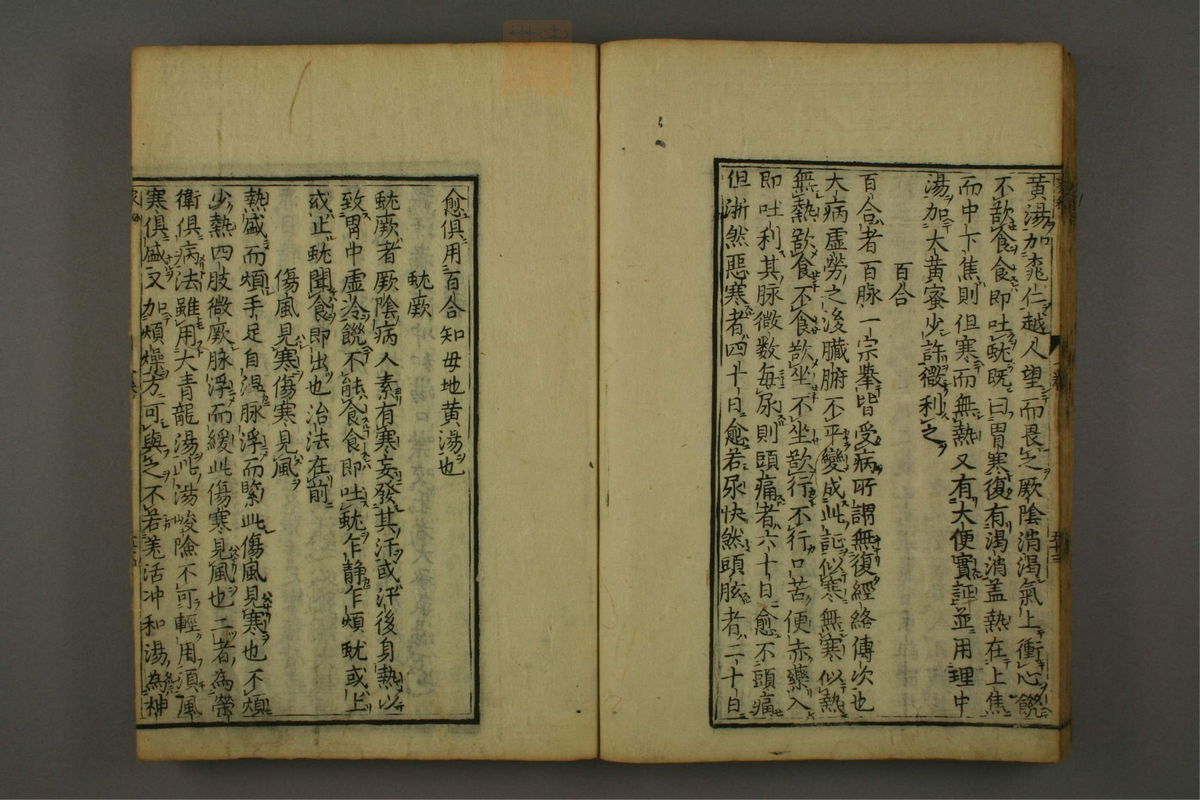 黄湯加桃仁越人望而畏之厥陰消渴氣上衝心饑
不欲食食即吐蚘既曰胃寒復有渴消盖熱在上焦
而中下焦則但寒而無熱又有大便實証並用理中
湯加大黄蜜少許微利之
百合
百合者百脉一宗擧皆受病所謂無復經絡傳次也
大病虚勞之後臓腑不平變成此証以寒無寒似熱
無熱欲食不食欲坐不坐欲行不行口苦便赤藥入
即吐利其脉微数毎尿則頭痛者六十日愈不頭痛
但淅然惡寒者四十日愈若尿快然頭眩者二十日
愈俱用百合知母地黄湯也
蚘厥
蚘厥者厥陰病人素有寒妄發其汗或汗後身熱以
致胃中虚冷饑不能食食即吐蚘乍静乍煩蚘或上
或止蚘聞食即出也治法在前
傷風見寒傷寒見風
熱盛而煩手足自温脉浮而緊此傷風見寒也不煩
少熱四肢微厥脉浮而緩此傷寒見風也二者為榮
衛俱病法雖用大青龍湯此湯峻險不可輕用須風
寒俱盛又加煩燥方可與之不若羌活冲和湯為神